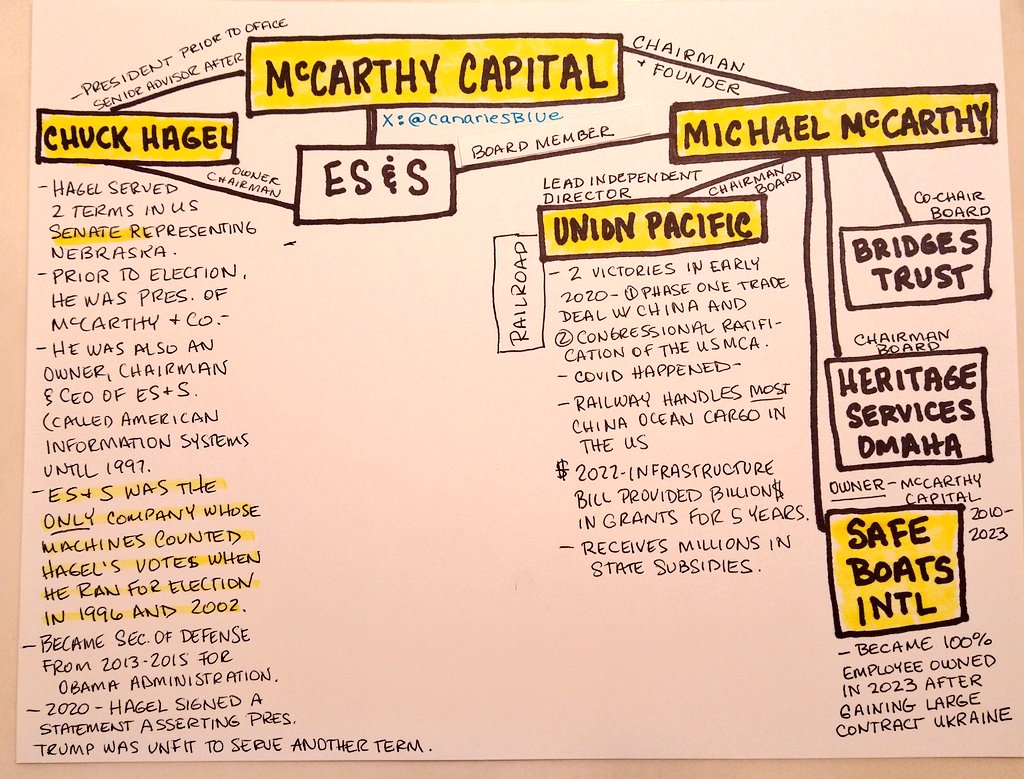 -PRESIDENT PRIOR TO OFFICE
SENIOR ADVISOR AFTER
McCARTHY CAPITAL
CHAIRMAN
+ FOUNDER
X: @CanariesBlue
CHUCK HAGEL
MICHAEL McCARTHY
BOARD MEMBER
ES & S
OWNER
CHAIRMAN
- HAGEL SERVED
2 TERMS IN US
SENATE REPRESENTING
NEBRASKA.
- PRIOR TO ELECTION,
HE WAS PRES. OF
McCARTHY + CO.-
- HE WAS ALSO AN
OWNER, CHAIRMAN
& CEO OF ES+S.
(CALLED AMERICAN
INFORMATION SYSTEMS
UNTIL 1997.
- ES+S WAS THE
ONLY COMPANY WHOSE
MACHINES COUNTED
HAGEL'S VOTES WHEN
HE RAN FOR ELECTION
IN 1996 AND 2002.
- BECAME SEC. OF DEFENSE
FROM 2013-2015 FOR
OBAMA ADMINISTRATION.
- 2020 - HAGEL SIGNED A
STATEMENT ASSERTING PRES.
TRUMP WAS UNFIT TO SERVE ANOTHER TERM.
LEAD INDEPENDENT
DIRECTOR
CHAIRMAN
BOARD
UNION PACIFIC
RAILROAD
- 2 VICTORIES IN EARLY
2020- ① PHASE ONE TRADE
DEAL W/ CHINA AND
② CONGRESSIONAL RATIFI-
CATION OF THE USMCA.
- COVID HAPPENED -
- RAILWAY HANDLES MOST
CHINA OCEAN CARGO IN
THE US
$ 2022-INFRASTRUCTURE
BILL PROVIDED BILLION$
IN GRANTS FOR 5 YEARS.
- RECEIVES MILLIONS IN
STATE SUBSIDIES.
CO-CHAIR
BOARD
BRIDGES
TRUST
CHAIRMAN
BOARD
HERITAGE
SERVICES
OMAHA
OWNER - McCARTHY
CAPITAL
2010-
2023
SAFE
BOATS
INTL
- BECAME 100%
EMPLOYEE OWNED
IN 2023 AFTER
GAINING LARGE
CONTRACT UKRAINE